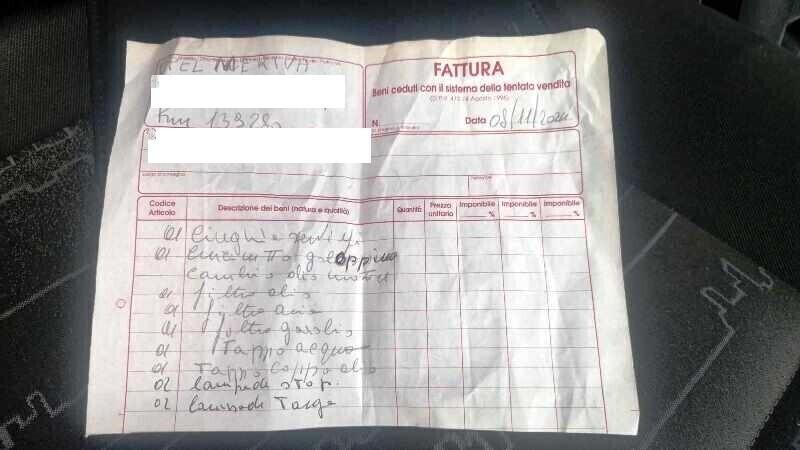 FATTURA
Beni ceduti con il sistema della tentata vendita
(D.P.R. 472 14 Agosto 1996)
N.
Data 08/11/2024
Km
Codice Articolo
Descrizione dei beni (natura e qualità)
Quantità
Prezzo unitario
Imponibile %
Imponibile %
Imponibile %
01 Cinghia servizi
01
cambio olio motore
01 filtro olio
01 filtro aria
01 filtro gasolio
01 Tappo acqua
01 Tappo coppa olio
02 lampade stop.
02 lampade Targa